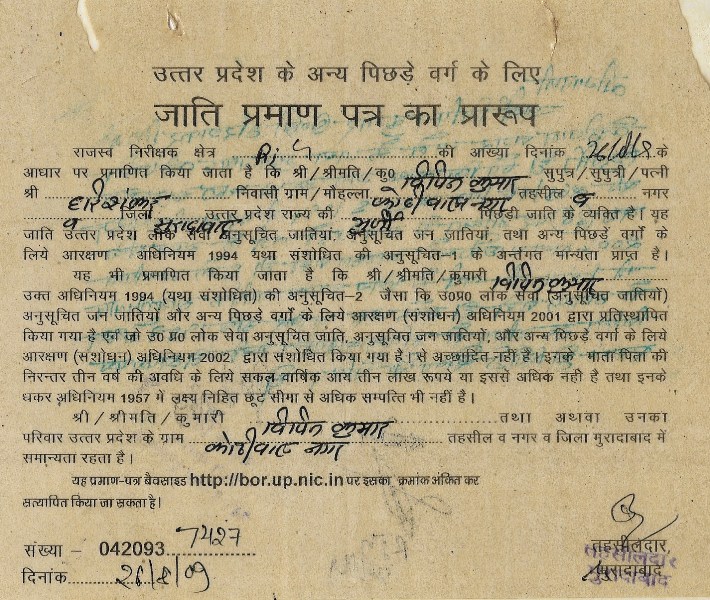 उत्तर प्रदेश के अन्य पिछड़े वर्ग के लिए
जाति प्रमाण पत्र का प्रारूप
राजस्व निरीक्षक क्षेत्र की आख्या दिनांक के
आधार पर प्रमाणित किया जाता है कि श्री/श्रीमति/कु० विपिन कुमार सुपुत्र/सुपुत्री/पत्नी
श्री हरिशंकर निवासी ग्राम/मौहल्ला तहसील व नगर
व जिला मुरादाबाद उत्तर प्रदेश राज्य की पिछड़ी जाति के व्यक्ति है। यह
जाति उत्तर प्रदेश लोक सेवा अनुसूचित जातियां, अनुसूचित जन जातियां, तथा अन्य पिछड़े वर्गों के
लिये आरक्षण अधिनियम 1994 यथा संशोधित की अनुसूचित-1 के अर्न्तगत मान्यता प्राप्त है।
यह भी प्रमाणित किया जाता है कि श्री/श्रीमति/कुमारी विपिन कुमार
उक्त अधिनियम 1994 (यथा संशोधित) की अनुसूचित-2 जैसा कि उ०प्र० लोक सेवा (अनुसूचित जातियों)
अनुसूचित जन जातियों और अन्य पिछड़े वर्गों के लिये आरक्षण (संशोधन) अधिनियम 2001 द्वारा प्रतिस्थापित
किया गया है एवं जो उ० प्र० लोक सेवा अनुसूचित जाति, अनुसूचित जन जातियों, और अन्य पिछड़े वर्गों के लिये
आरक्षण (संशोधन) अधिनियम 2002 द्वारा संशोधित किया गया है। से अच्छादित नहीं है। इनके माता पिता की
निरन्तर तीन वर्ष की अवधि के लिये सकल वार्षिक आय तीन लाख रूपये या इससे अधिक नही है तथा इनके
धकर अधिनियम 1957 मे लक्ष्य निहित छूट सीमा से अधिक सम्पत्ति भी नहीं है।
श्री/श्रीमति/कुमारी विपिन कुमार तथा अथवा उनका
परिवार उत्तर प्रदेश के ग्राम तहसील व नगर व जिला मुरादाबाद में
समान्यता रहता है।
यह प्रमाण-पत्र बैवसाइड http://bor.up.nic.in पर इसका क्रमांक अंकित कर
सत्यापित किया जा सकता है।
संख्या - 042093 7427
दिनांक 26/8/09
तहसीलदार,
मुरादाबाद
तहसीलदार
मुरादाबाद